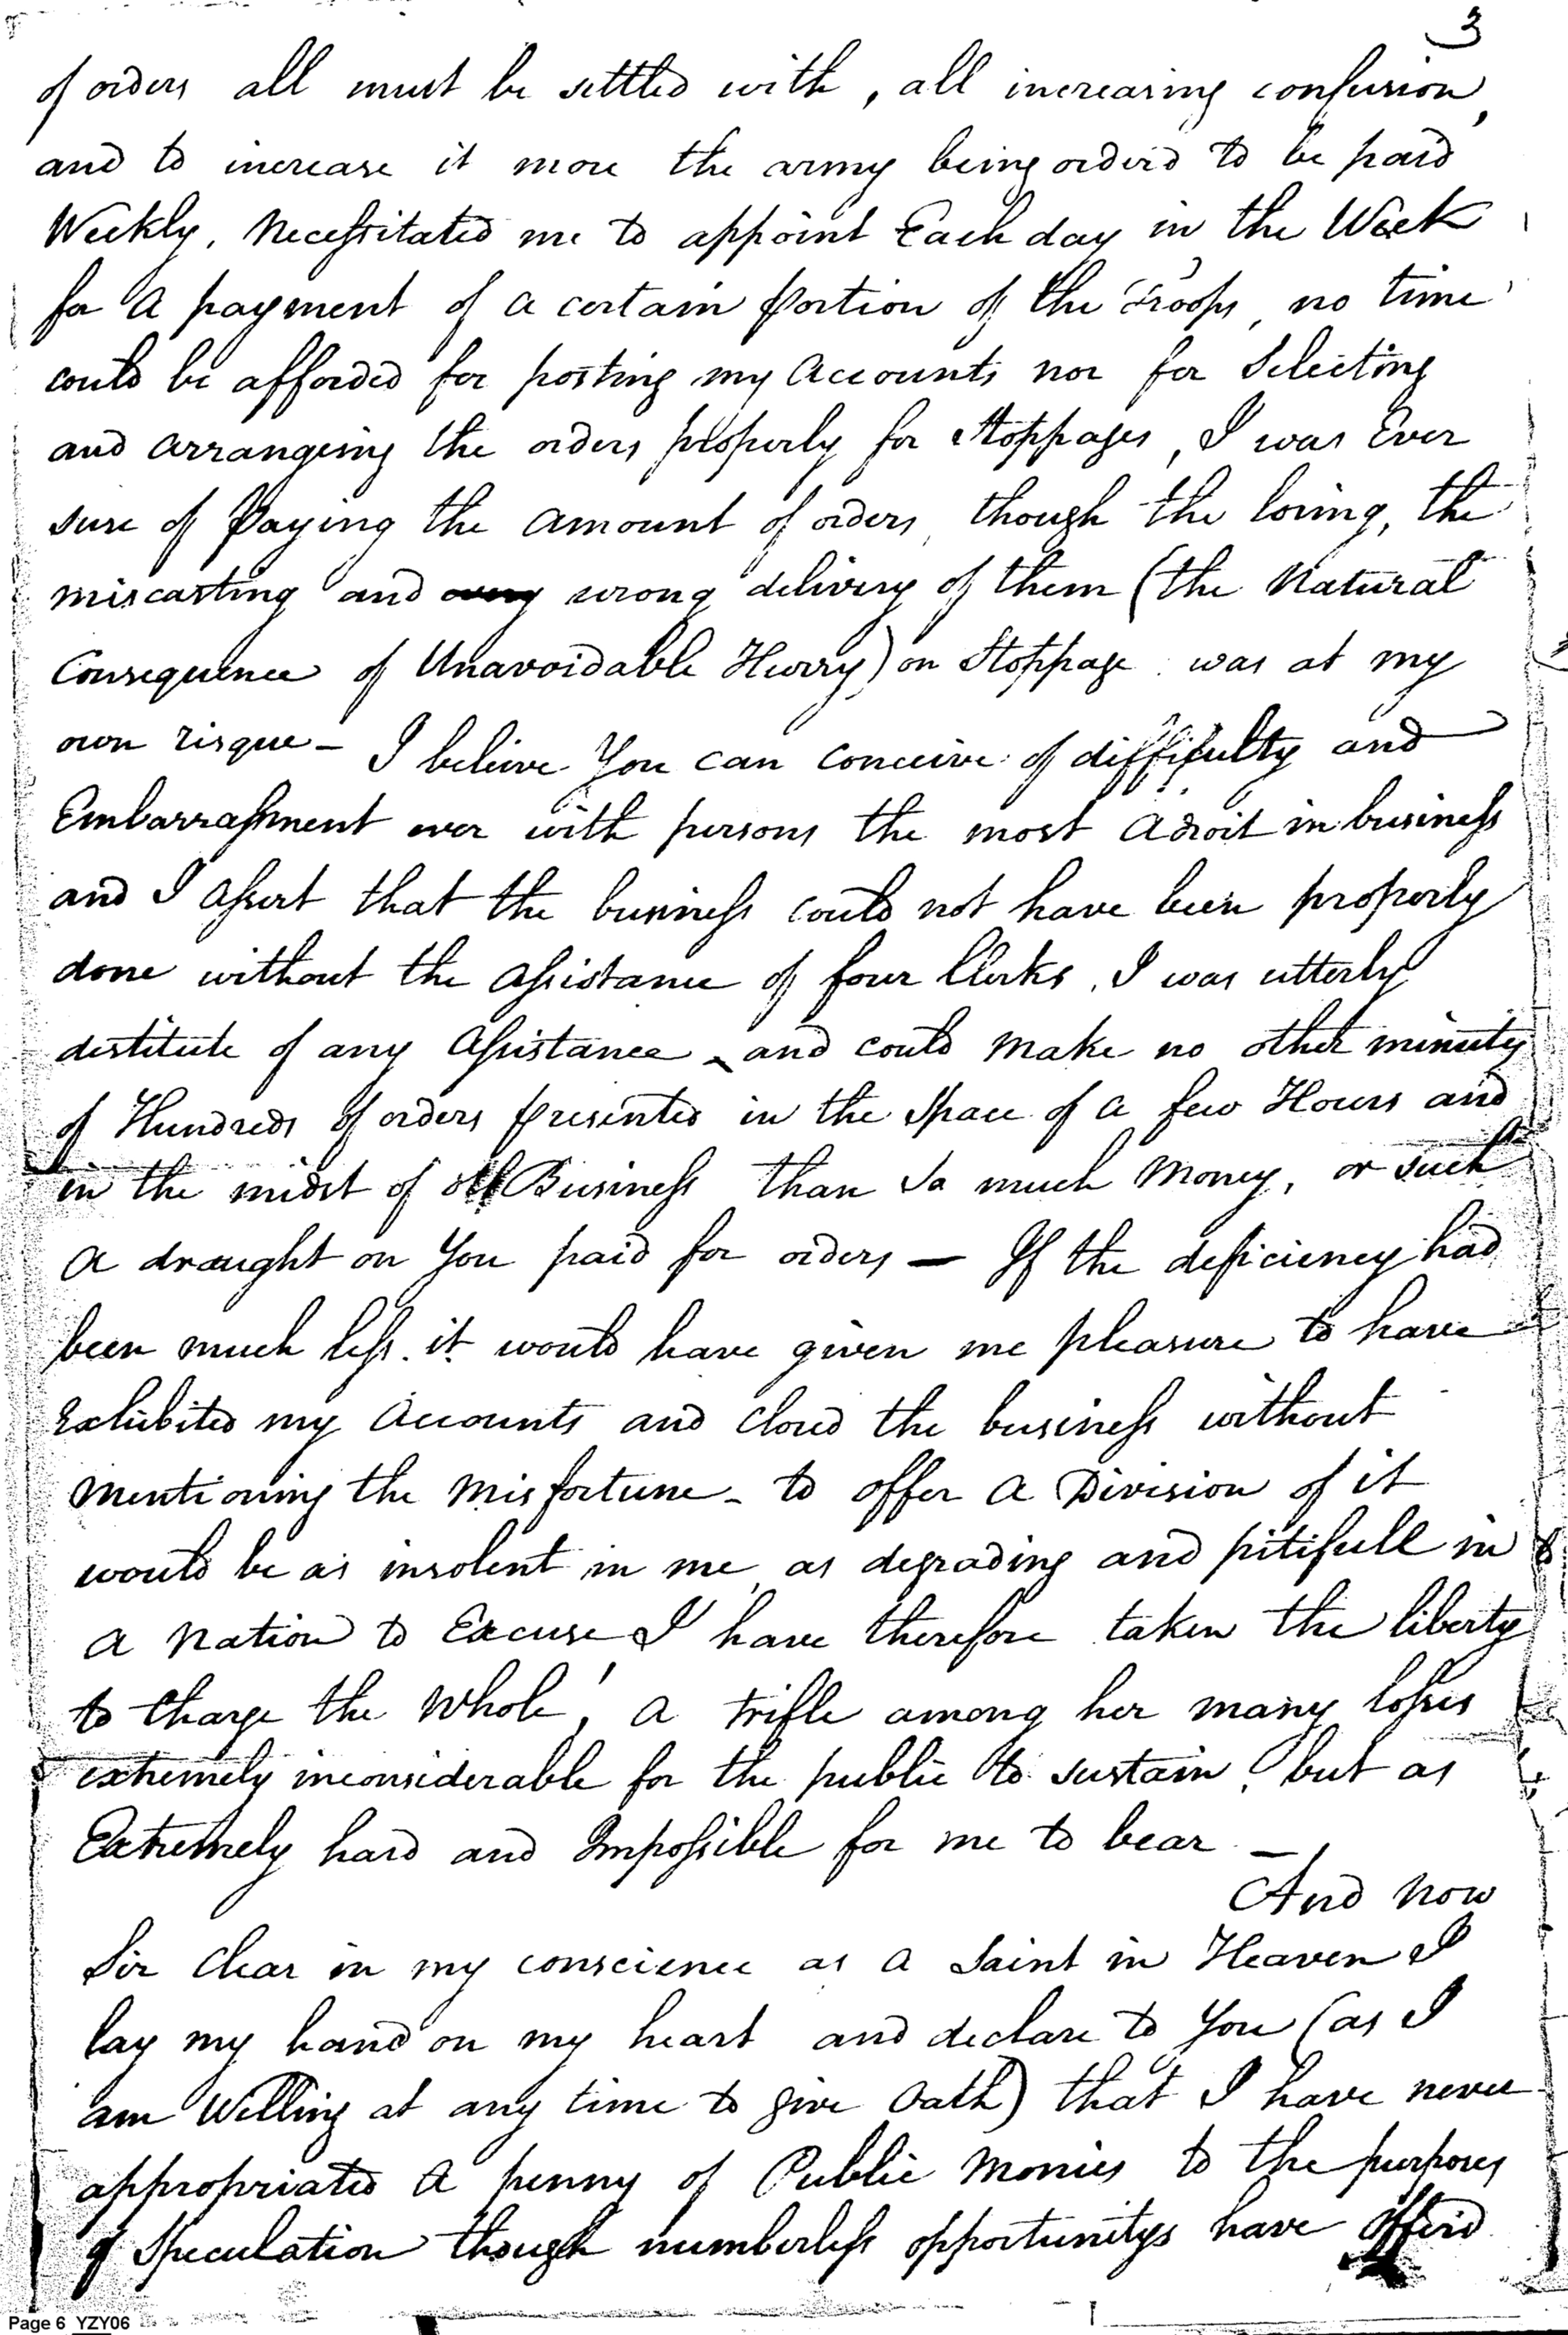 3
of orders all must be settled with, all increasing confusion,
and to increase it more the army being orderd to be paid
Weekly, Necessitated me to appoint Each day in the Week
for a payment of a certain portion of the Troops, no time
could be afforded for posting my Accounts nor for Selecting
and arrangeing the orders properly for Stoppages, I was Ever
sure of Paying the amount of orders, though the losing, the
miscasting and wrong delivery of them (the Natural
Consequence of Unavoidable Hurry) on Stoppage was at my
own risque - I believe You can conceive of difficulty and
Embarrassment ever with persons the most adroit in business
and I assert that the business could not have been properly
done without the assistance of four Clerks, I was utterly
destitute of any Assistance - and could make no other minuty
of Hundreds of orders presented in the Space of a few Hours and
in the midst of all Business than so much Money, or such
a draught on You paid for orders — If the deficiency had
been much less. it would have given me pleasure to have
Exhibited my Accounts and closed the business without
mentioning the misfortune - to offer a Division of it
would be as insolent in me, as degrading and pitifull in
a Nation to Excuse I have therefore taken the liberty
to Charge the Whole! a trifle among her many losses
extremely inconsiderable for the public to sustain, but as
Extremely hard and Impossible for me to bear —
And now
Sir Clear in my conscience as a Saint in Heaven I
lay my hand on my heart and declare to You (as I
am Willing at any time to give Oath) that I have never
appropriated a penny of Public Monies to the purposes
of Speculation though numberless opportunitys have offerd
Page 6 YZY06